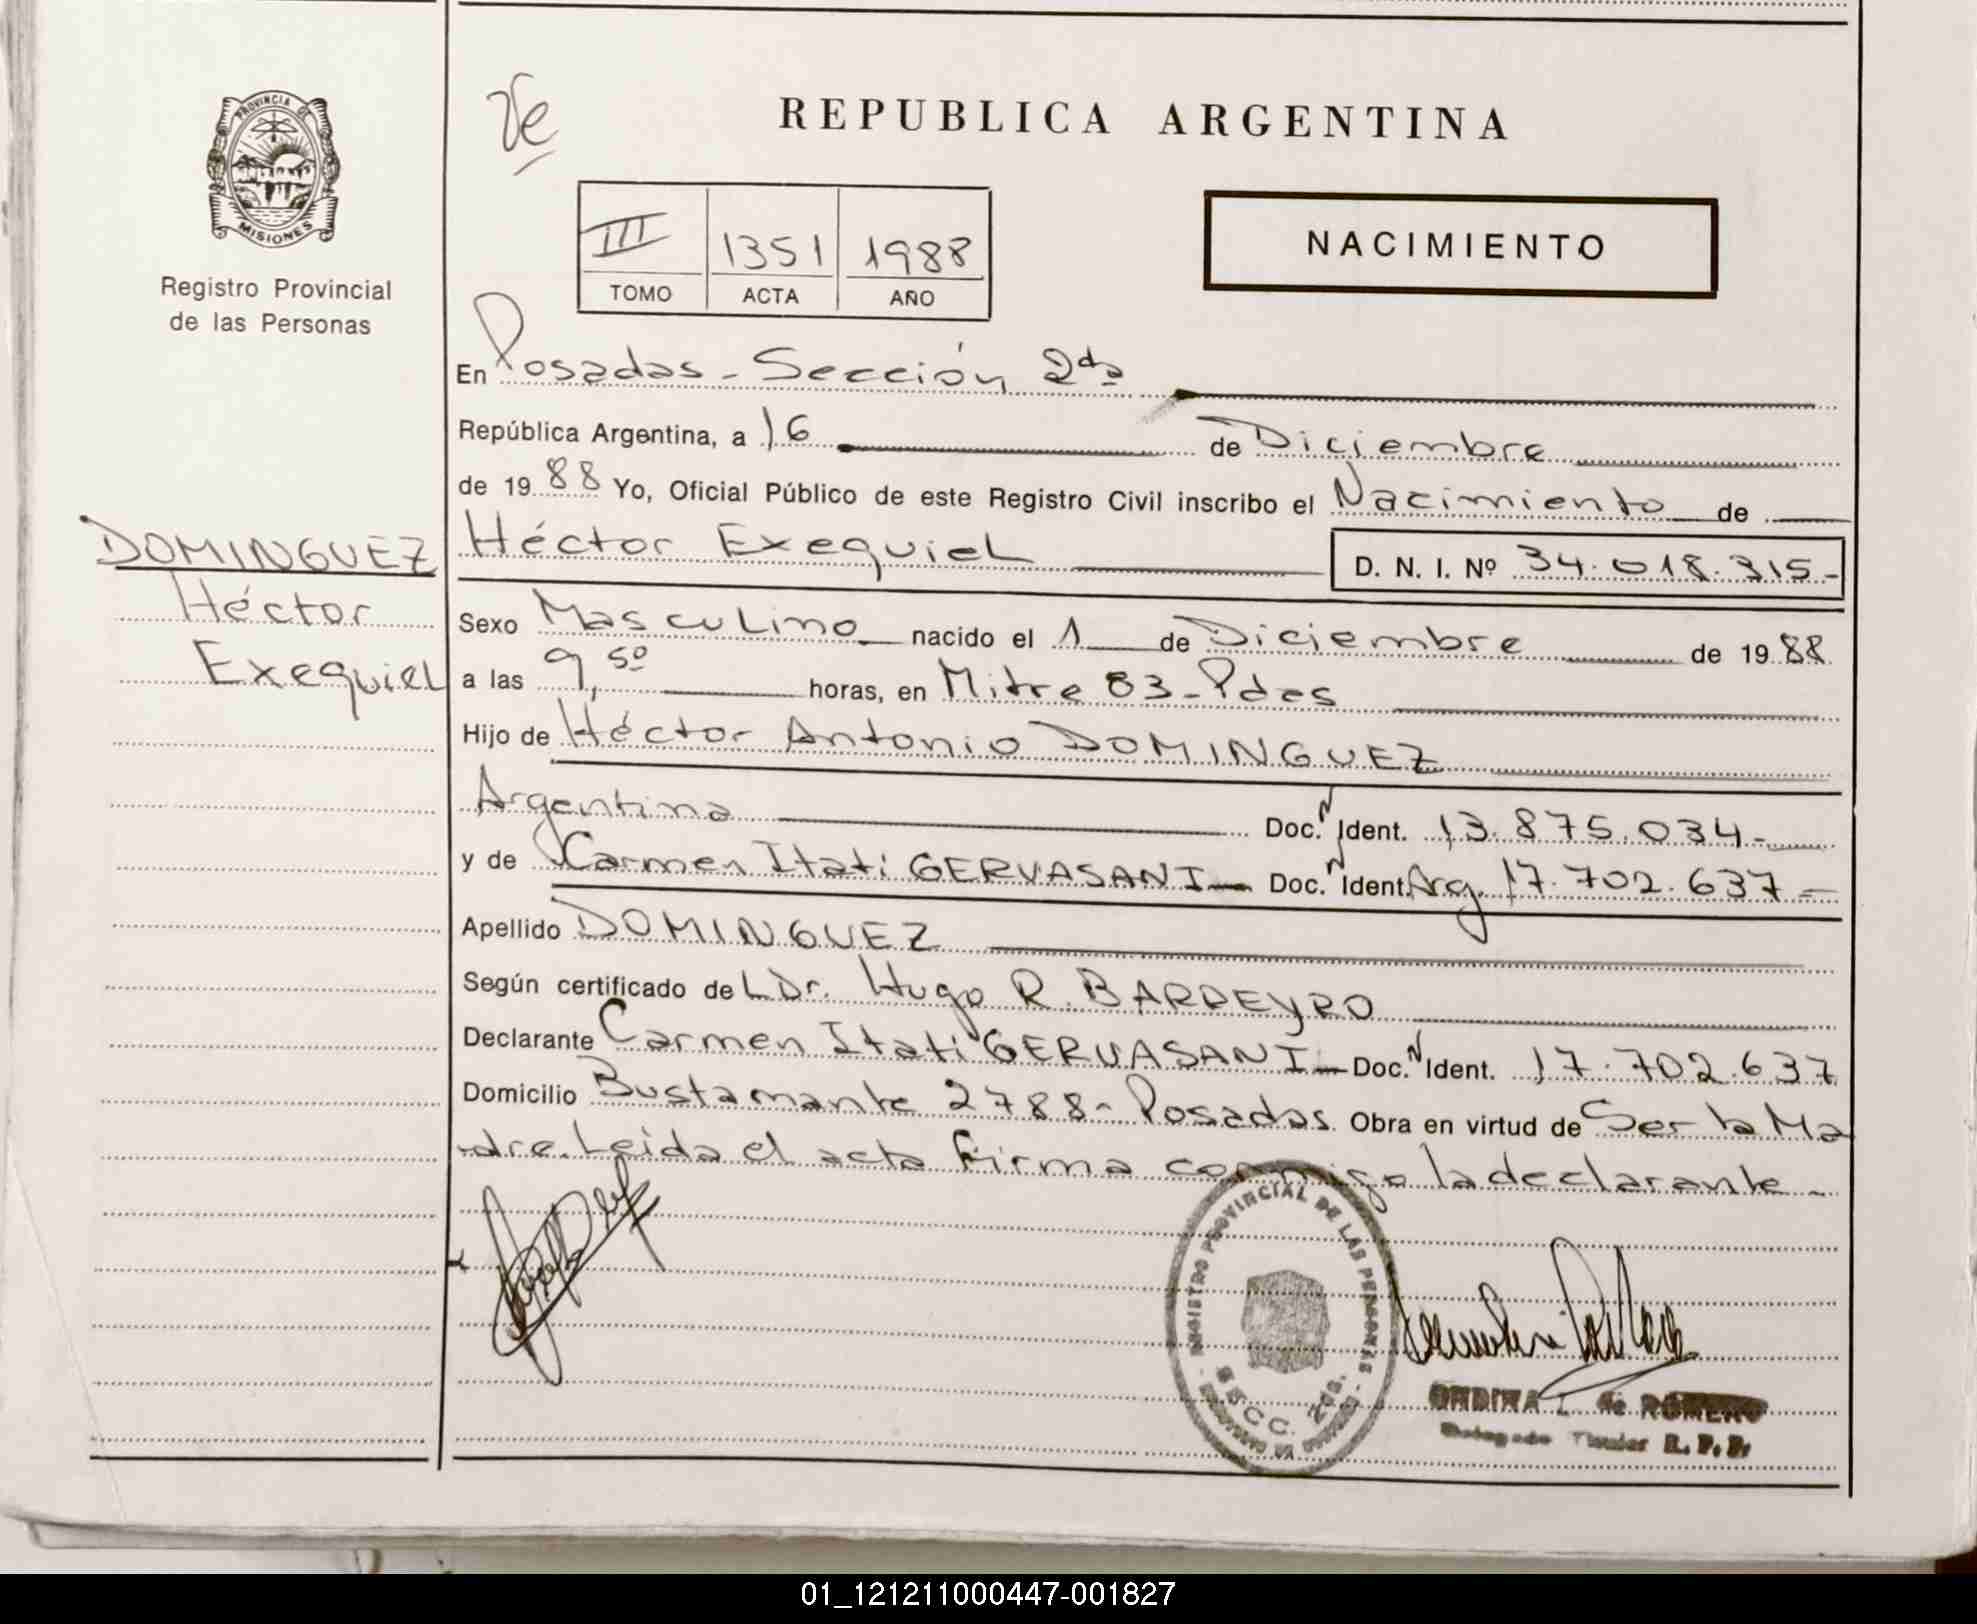 PROVINCIA DE
MISIONES
Registro Provincial
de las Personas
DOMINGUEZ
Héctor
Exequiel
REPUBLICA ARGENTINA
III 1351 1988
TOMO ACTA AÑO
NACIMIENTO
En Posadas - Sección 2da
República Argentina, a 16 de Diciembre
de 1988 Yo, Oficial Público de este Registro Civil inscribo el Nacimiento de
Héctor Exequiel D. N. I. Nº 34.018.315-
Sexo Masculino nacido el 1 de Diciembre de 1988
a las 9,50 horas, en Mitre 83 - Pdas
Hijo de Héctor Antonio DOMINGUEZ
Argentina Doc. N Ident. 13.875.034-
y de Carmen Itatí GERVASANI - Doc. N Ident. Arg. 17.702.637-
Apellido DOMINGUEZ
Según certificado del Dr. Hugo R. BARREYRO
Declarante Carmen Itatí GERVASANI - Doc. N Ident. 17.702.637
Domicilio Bustamante 2788 - Posadas Obra en virtud de Ser la Ma
dre. Leida el acta firma conmigo la declarante -
REGISTRO PROVINCIAL DE LAS PERSONAS
de ROMERO
Titular R. P. P.
01_121211000447-001827